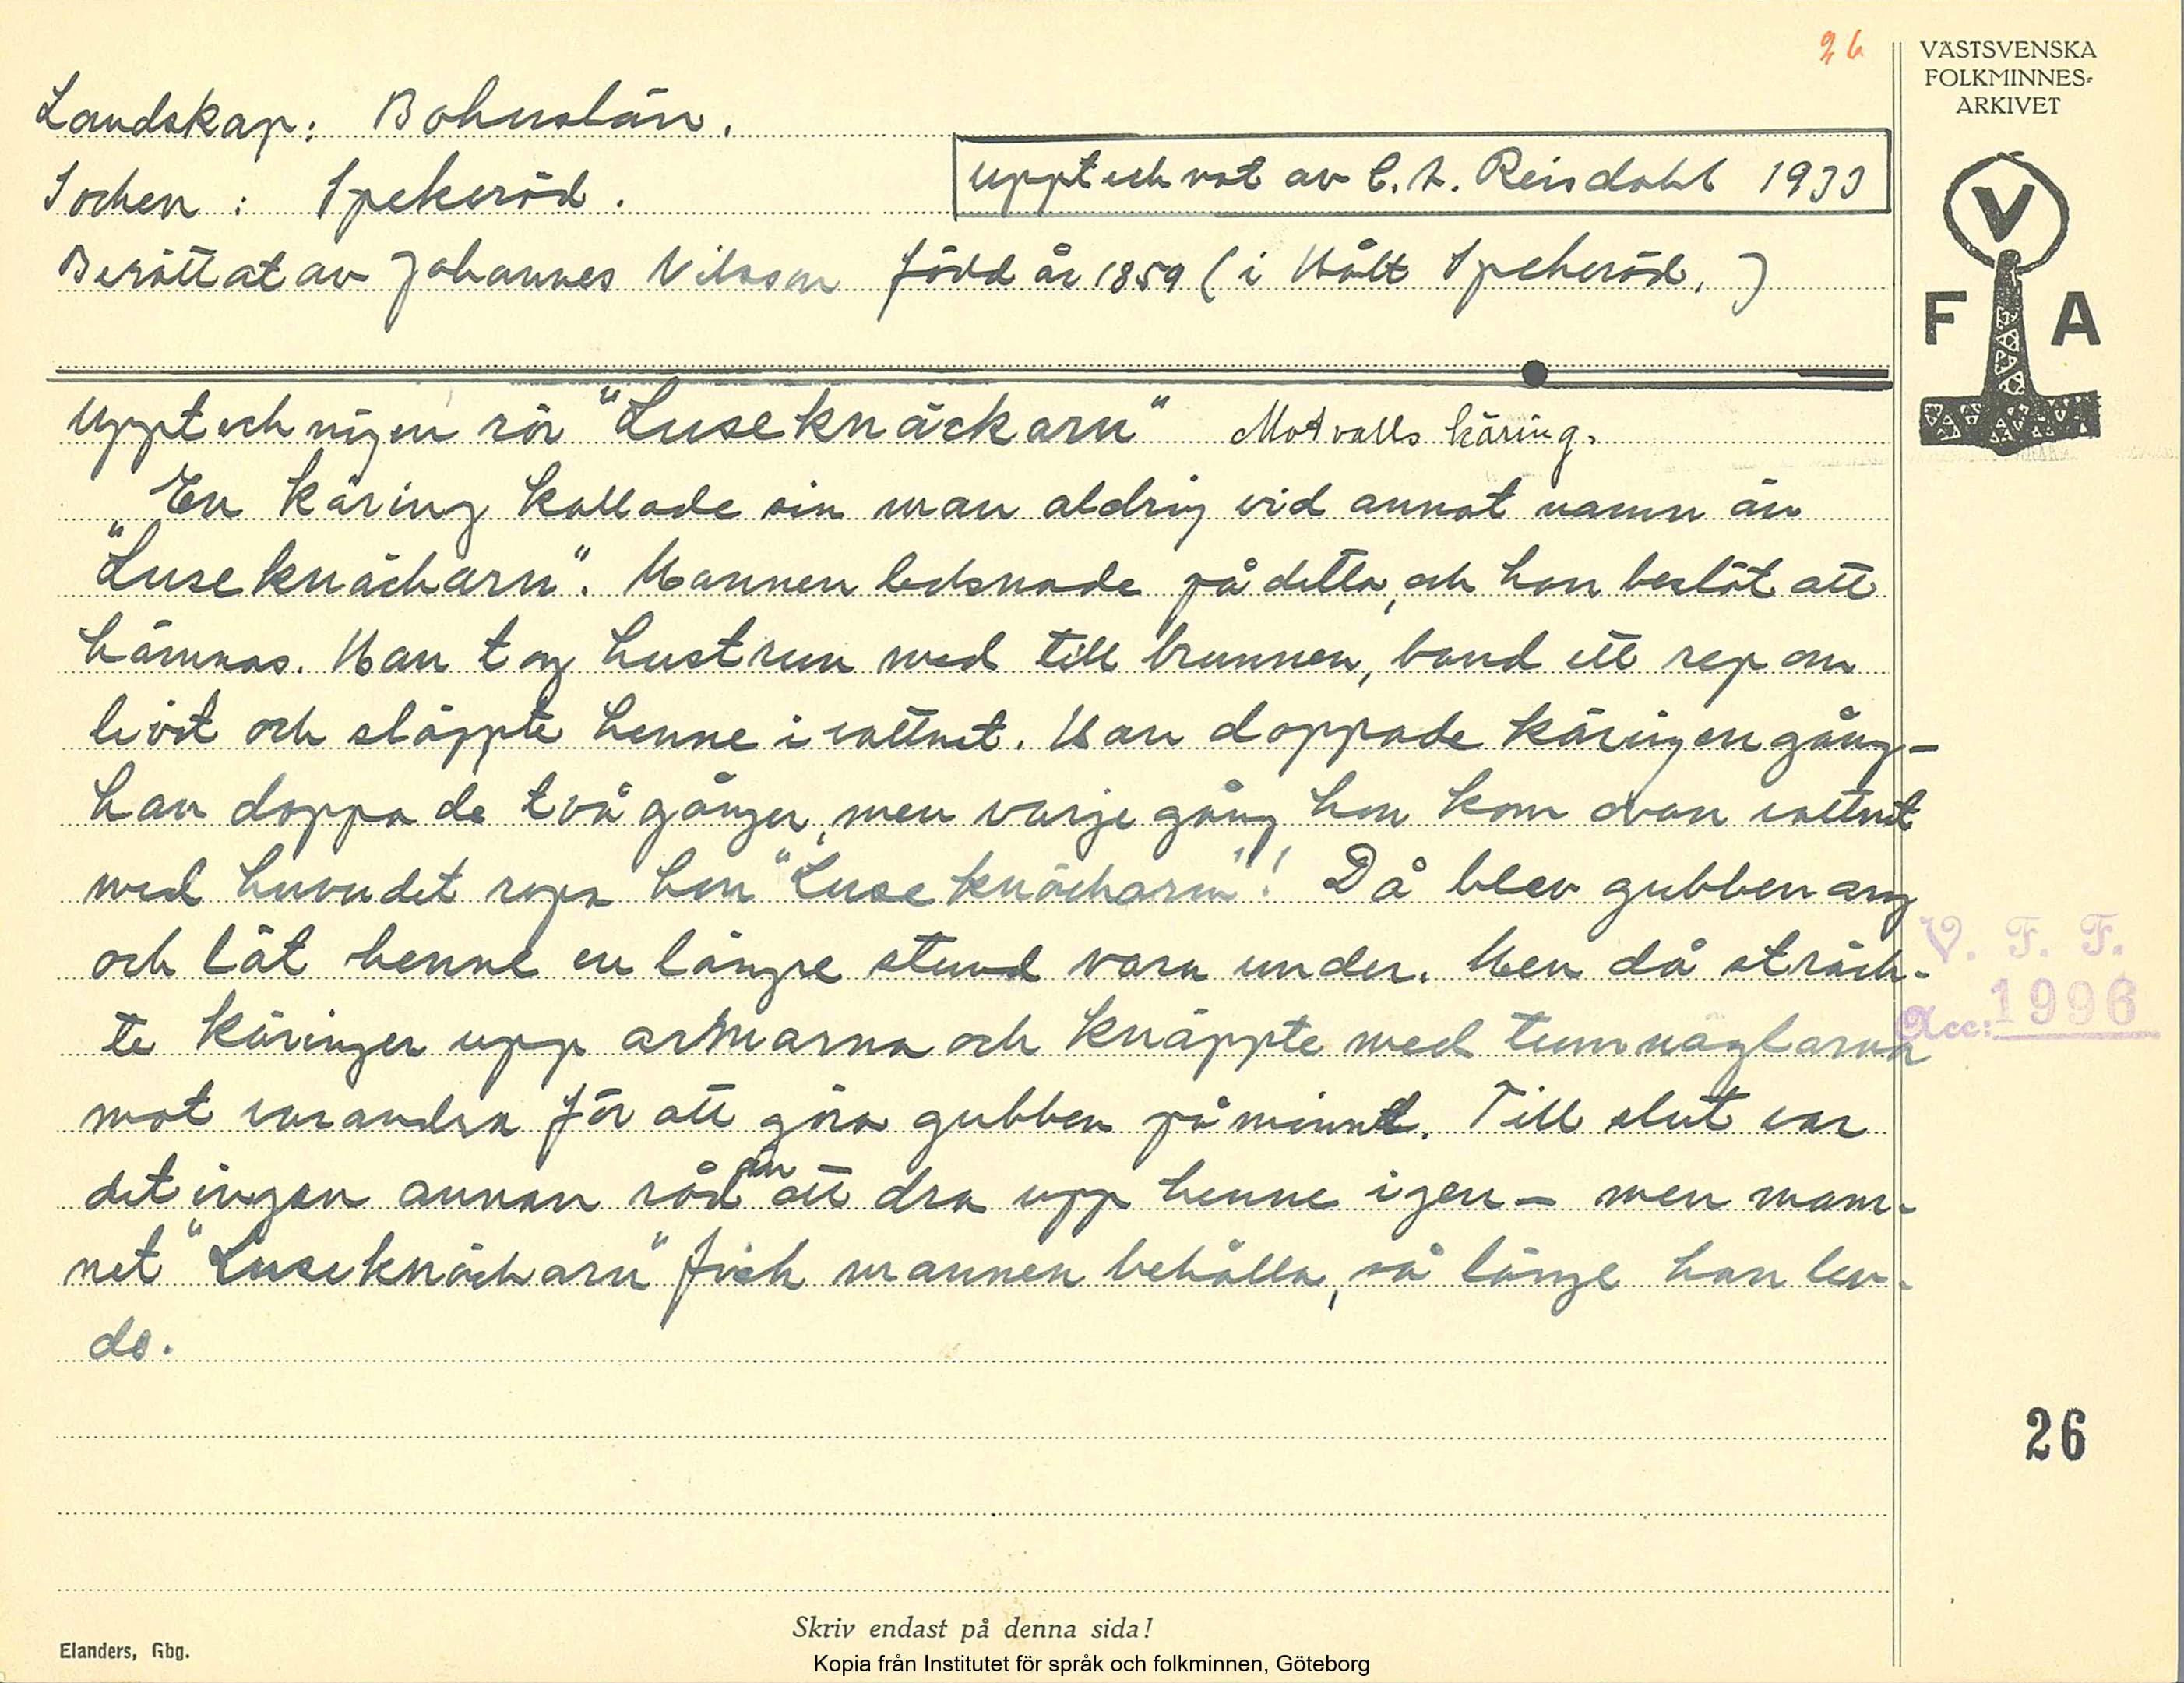 26
VÄSTSVENSKA
FOLKMINNES-
ARKIVET
Landskap: Bohuslän.
Socken: Spekeröd.
upptecknat av C. A. Reisdahl 1933
Berättat av Johannes Nilsson född år 1859 (i Hålt Spekeröd.)
V
F A
Uppteckningen rör "Luseknäckarn" Motvalls käring.
En käring kallade sin man aldrig vid annat namn än
"Luseknäckarn". Mannen ledsnade på detta, och han beslöt att
hämnas. Han tog hustrun med till brunnen, band ett rep om
livet och släppte henne i vattnet. Han doppade käringen gång-
han doppade två gånger, men varje gång hon kom ovan vattnet
med huvudet ropa hon "Luseknäckarn"! Då blev gubben arg
och lät henne en längre stund vara under. Men då sträck-
te käringen upp armarna och knäppte med tumnaglarna
mot varandra för att göra gubben påmind. Till slut var
det ingen annan råd än att dra upp henne igen – men nam-
net "Luseknäckarn" fick mannen behålla, så länge han lev-
de.
V. F. F.
Acc: 1996
26
Skriv endast på denna sida!
Elanders, Gbg.
Kopia från Institutet för språk och folkminnen, Göteborg